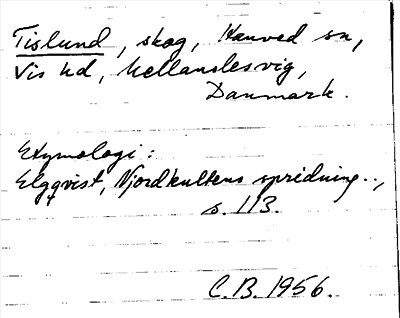 Tislund, skog, Hauved sn,
Vis hd, Mellanslesvig,
Danmark.
Etymologi:
Elgqvist, Njordkultens spridning..,
s. 113.
C.B. 1956.